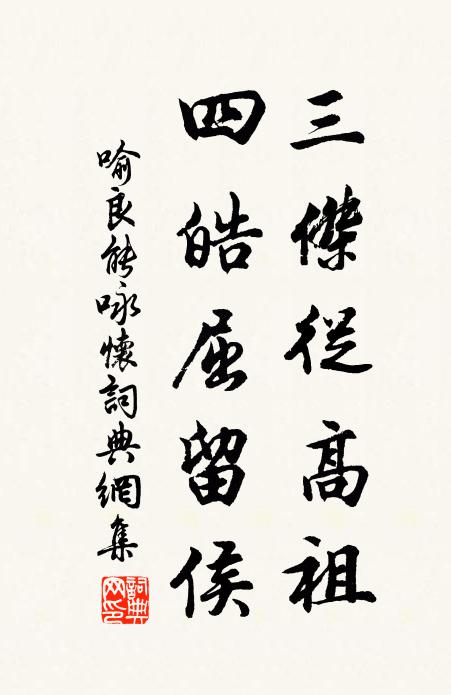 三傑從高祖
四皓屈留侯
喻良能咏懷詞典網集
詞典網印